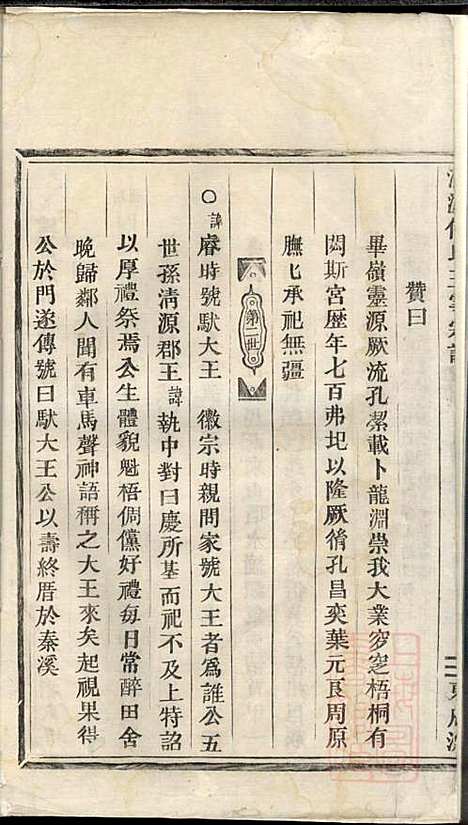 贊曰
畢嶺靈源厥流孔潔載卜龍淵崇我大業穸窆梧桐有
閎斯宮歷年七百弗圮以隆厥脩孔昌奕葉元良周原
膴匕承祀無疆
第二世
○諱睿時號馱大王 徽宗時親問家號大王者爲誰公五
世孫淸源郡王諱執中對曰慶所基而祀不及上特詔
以厚禮祭焉公生體貌魁梧倜儻好禮每日常醉田舍
晚歸鄰人聞有車馬聲神語稱之大王來矣起視果得
公於門遂傳號曰馱大王公以壽終厝於秦溪